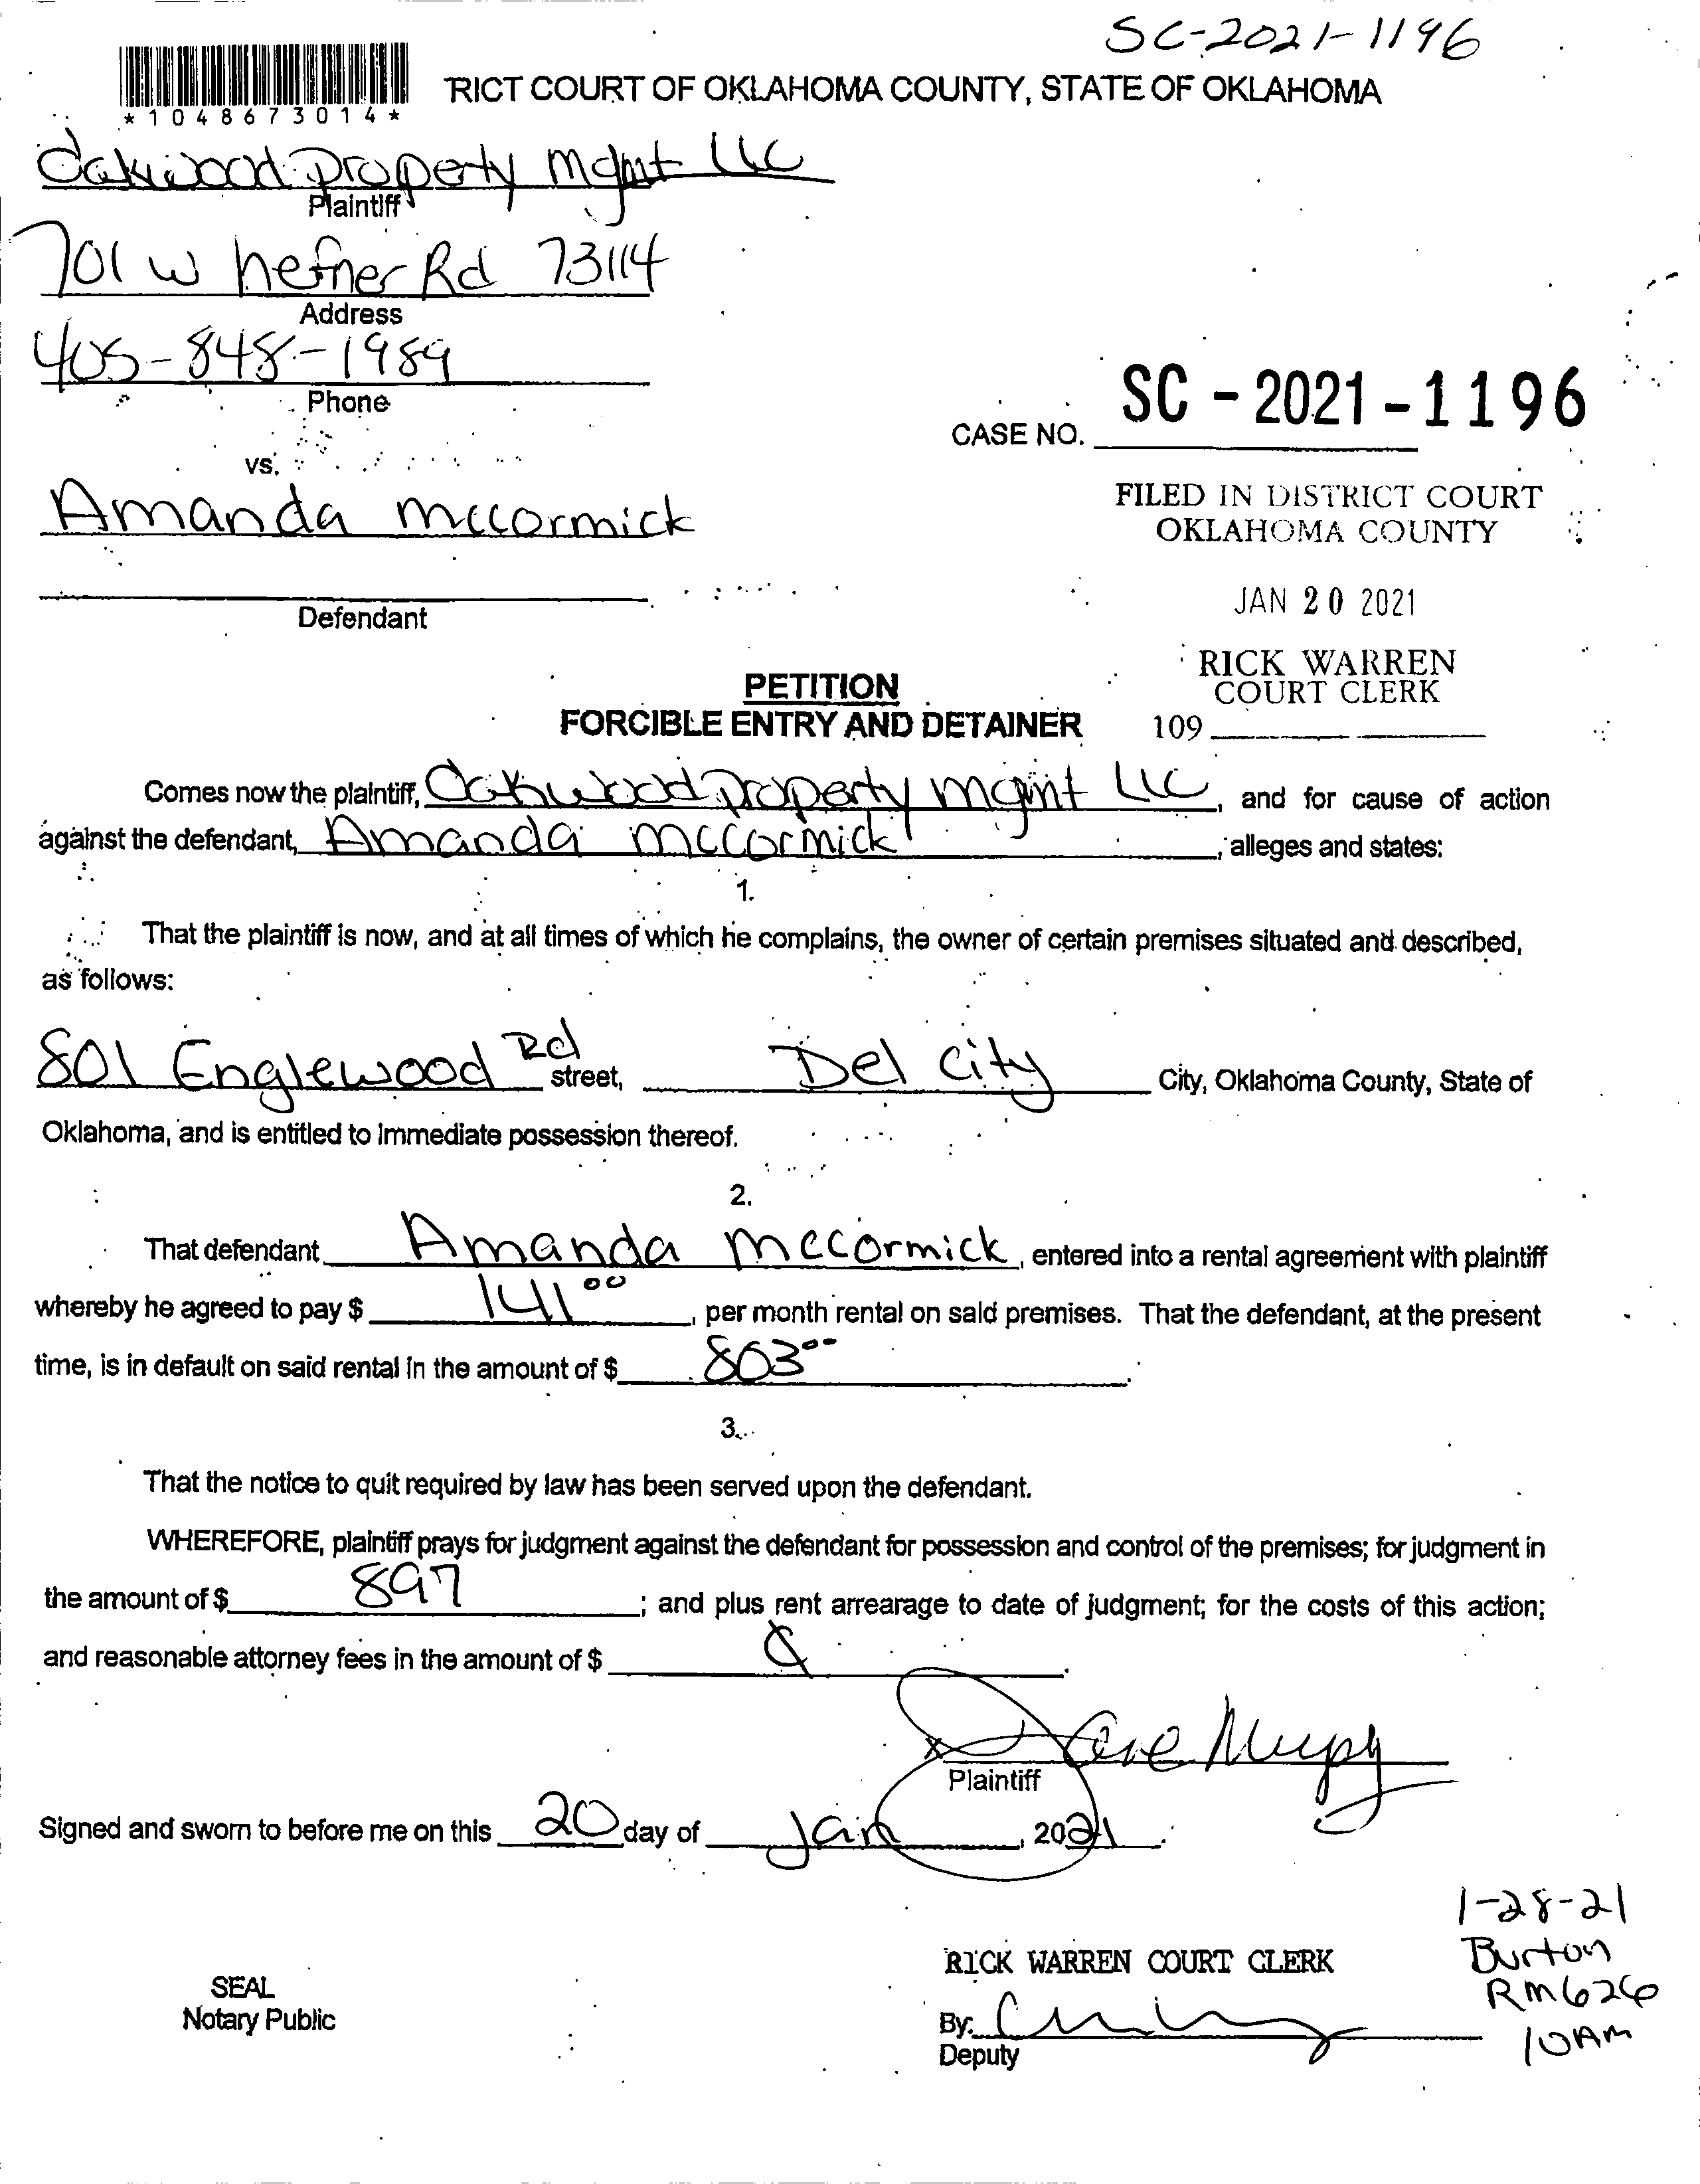 SC-2021-1196
*1048673014*
RICT COURT OF OKLAHOMA COUNTY, STATE OF OKLAHOMA
Oakwood Property Mgmt LLC
Plaintiff
701 W hefner Rd 73114
Address
405-848-1989
Phone
CASE NO. SC-2021-1196
vs.
Amanda mccormick
FILED IN DISTRICT COURT
OKLAHOMA COUNTY
JAN 20 2021
Defendant
RICK WARREN
COURT CLERK
109
PETITION
FORCIBLE ENTRY AND DETAINER
Comes now the plaintiff, Oakwood Property mgmt LLC, and for cause of action
against the defendant, Amanda mccormick, alleges and states:
1.
That the plaintiff is now, and at all times of which he complains, the owner of certain premises situated and described,
as follows:
801 Englewood Rd street, Del City City, Oklahoma County, State of
Oklahoma, and is entitled to immediate possession thereof.
2.
That defendant Amanda mccormick, entered into a rental agreement with plaintiff
whereby he agreed to pay $ 141 00, per month rental on said premises. That the defendant, at the present
time, is in default on said rental in the amount of $ 803 00.
3.
That the notice to quit required by law has been served upon the defendant.
WHEREFORE, plaintiff prays for judgment against the defendant for possession and control of the premises; for judgment in
the amount of $ 897; and plus rent arrearage to date of judgment; for the costs of this action;
and reasonable attorney fees in the amount of $
x
Plaintiff
Signed and sworn to before me on this 20 day of Jan, 2021.
1-28-21
Burton
RM626
10AM
RICK WARREN COURT CLERK
SEAL
Notary Public
By:
Deputy